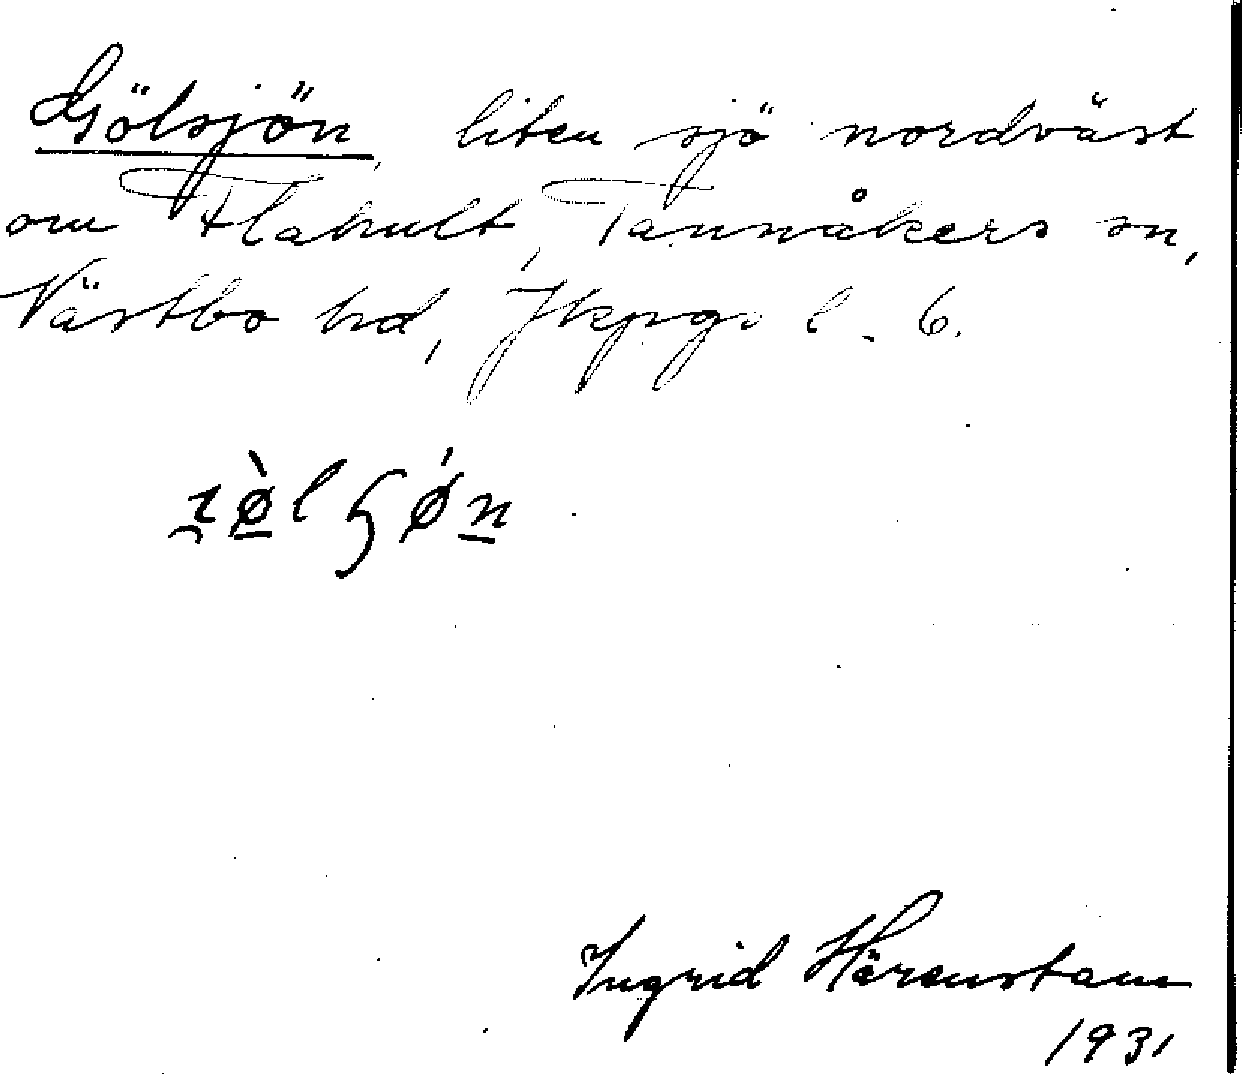 Gölsjön, liten sjö nordväst
om Flahult, Tannåkers sn,
Västbo hd, Jkpgs l. 6.
Ingrid Härenstam
1931